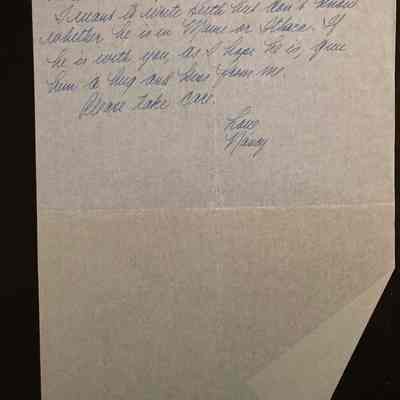 I meant to write Seth but don't know
whether he is in Maine or Ithaca. If
he is with you, as I hope he is, give
him a hug and kiss from me.
Please take care.
Love
Nancy